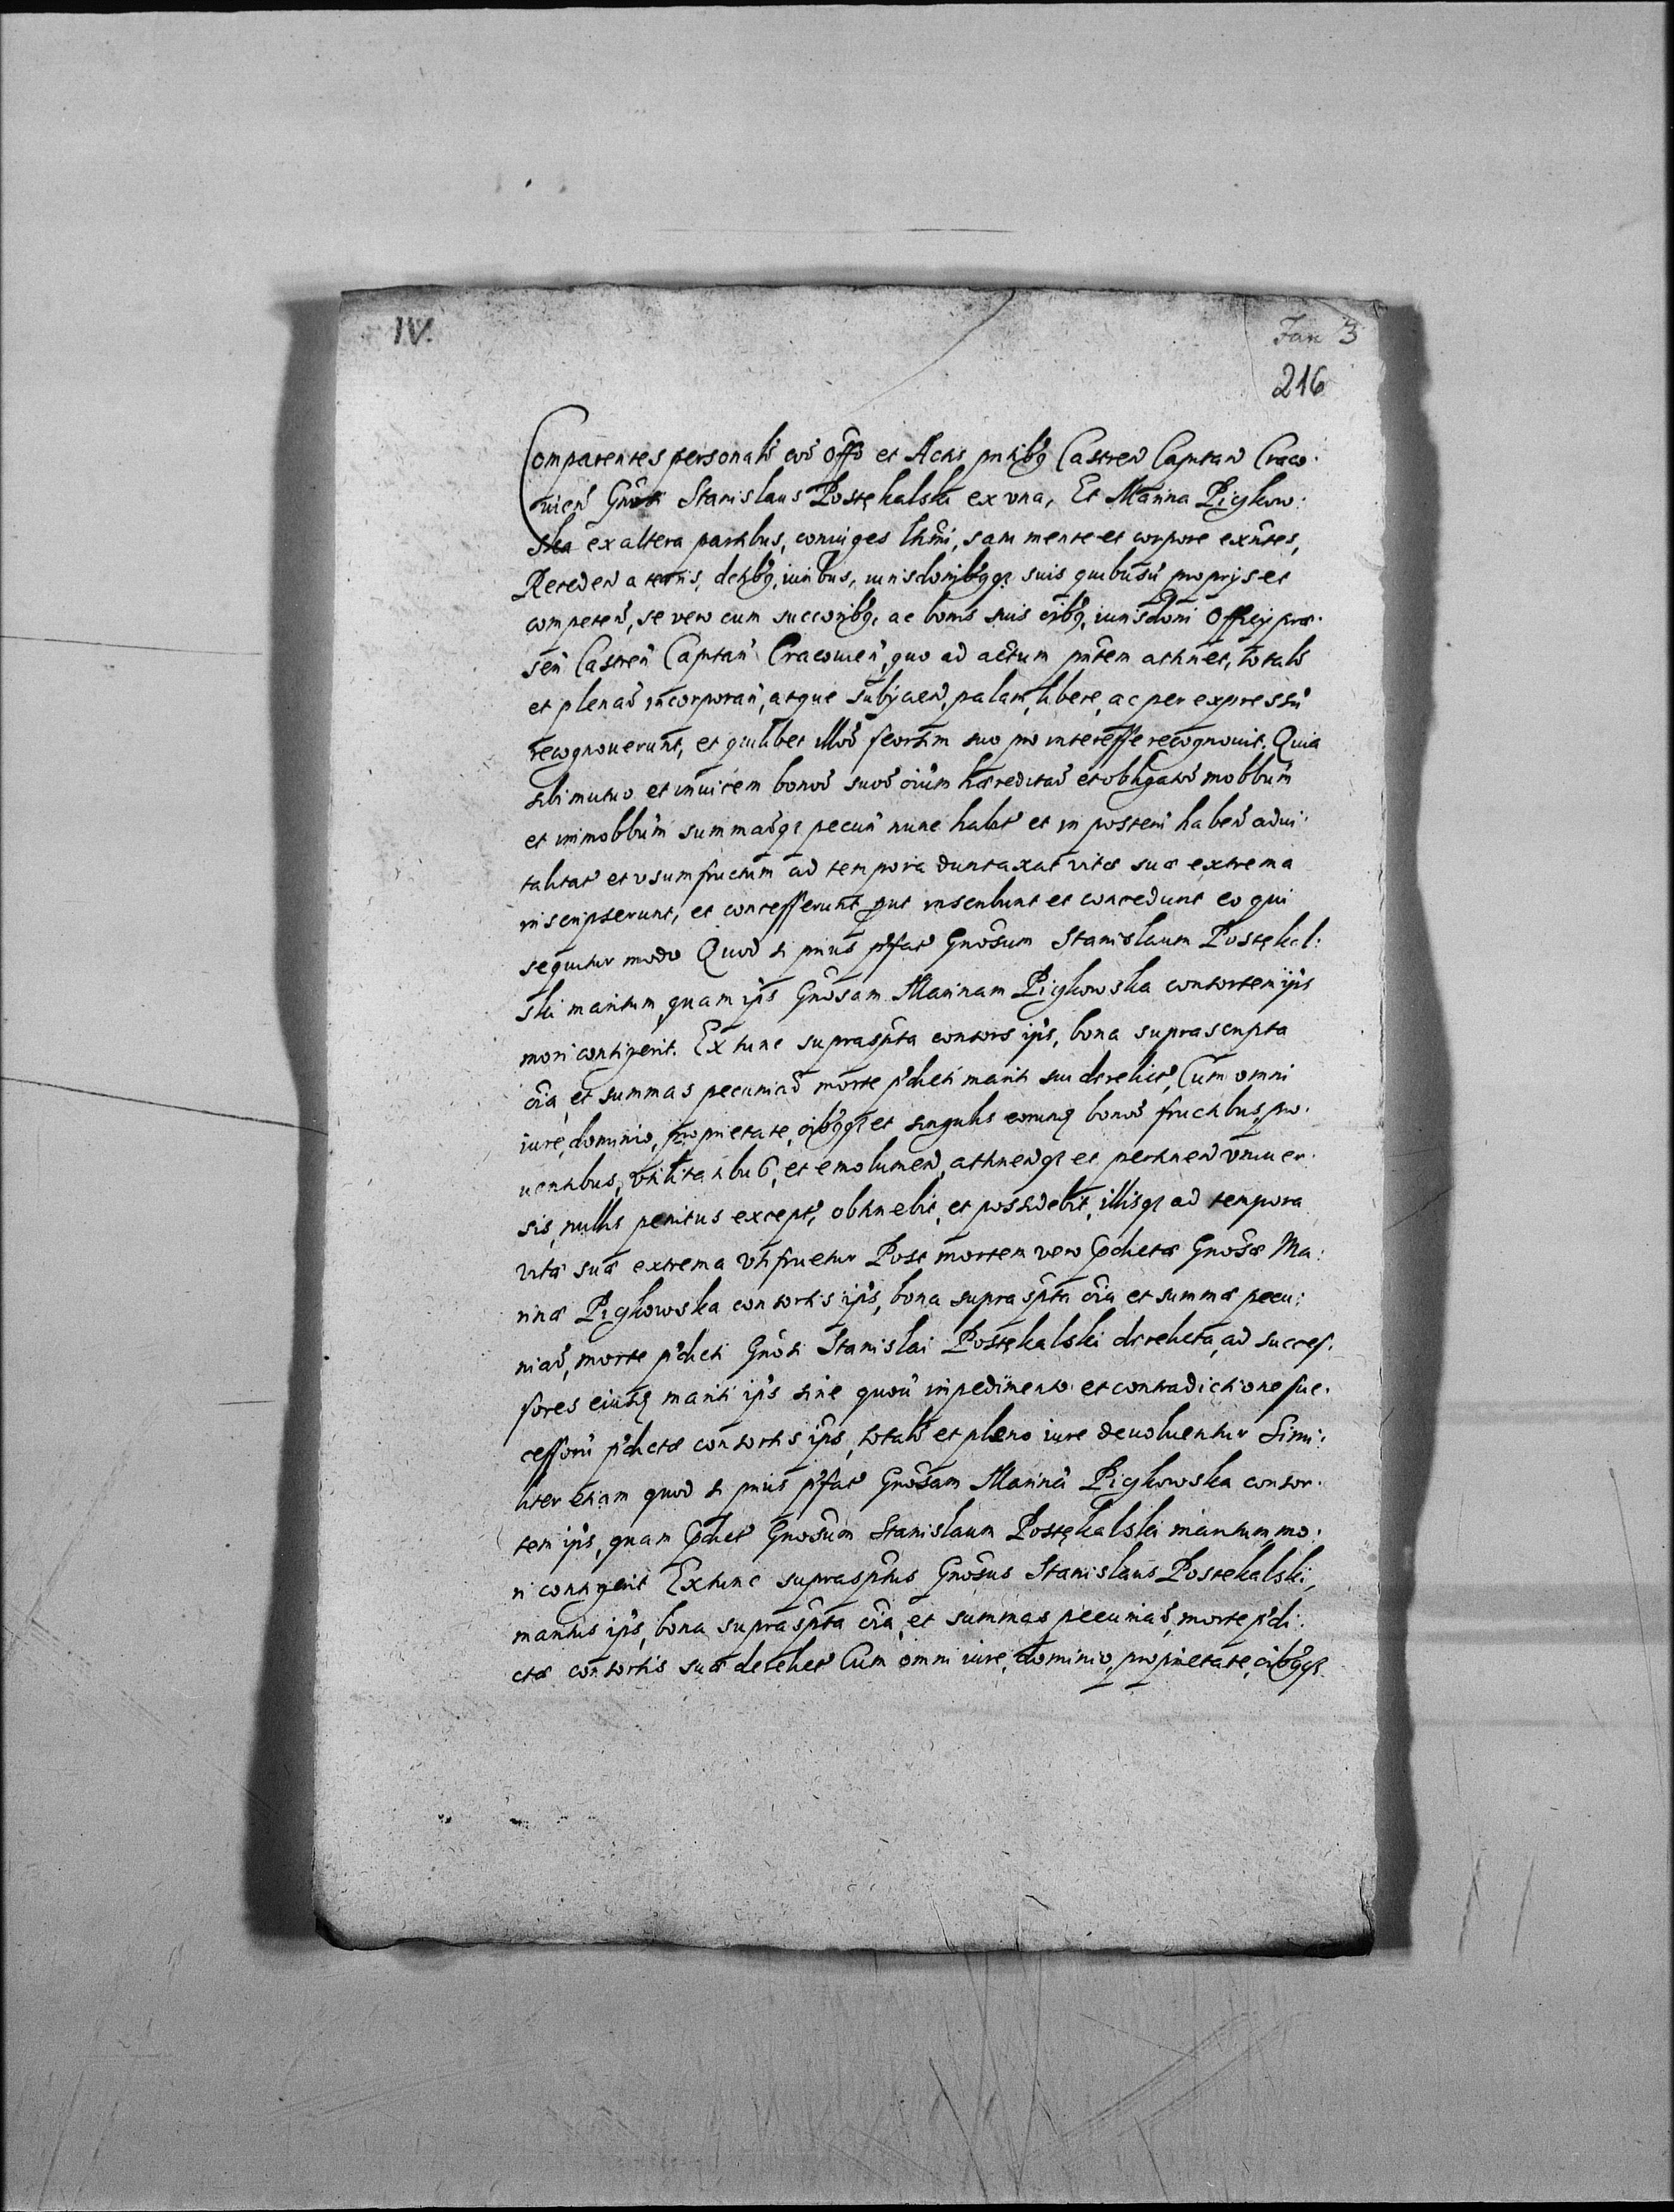 IV.
Jan 3
216
Comparentes personalr̃ corã Offō et Actis pntibq̃ Castreñ Capitañ Craco:
uieñ Gnōsi Stanislaus Postękalski ex vna, Et Marina Pigłow:
ska ex altera partibus, coniuges lt̃mi, sani mente et corpore exñtes,
Recedeñ a terris, dctibq̃, iuribus, iurisdõnibq̃q̨ suis quibusũ proprijs et
competeñ, se vero cum succoribq̃, ac bonis suis oibq̃, iurisdõni Officij præ:
señ Castreñ Capitañ Cracouieñ, quo ad actum pñtem attinet, totalr̃
et plenarĩ incorporañ, atque subijcieñ, palam, libere, ac per expressũ
recognouerunt, et quilibet illor̃ seorsim suo pro interesse recognouit. Quia
sibi mutuo et inuicem bonor̃ suor̃ oĩum hæreditar̃ et obligator̃ mobbiũm
et immobbiũm summarũq̨ pecuñ nunc habit̃ et in posterũ habeñ adui:
talitat̃ et vsumfructum ad tempora duntaxat vitæ suæ extrema
inscripserunt, et concesserunt put inscribunt et concedunt eo qui
sequitur modo Quod si prius p̃fat̃ Gnōsum Stanislaum Postękal:
ski maritum, quam ip̃s Gnōsam Marinam Pigłowska consortem ip̃s
mori contigerit. Extunc suprasp̃ta consors ip̃s, bona suprascripta
oĩa, et summas pecuniar̃ morte p̃dicti mariti sui derelict̃, Cum omni
iure, dominio, proprietate, oibq̃q̨ et singulis eorunq̨ bonor̃ fructibus, pro:
uentibus, vtilitatibus, et emolumeñ, attineñq̨ et pertineñ vniuer:
sis, nullis penitus except̃, obtinebit, et possidebit, illisq̨ ad tempora
vitæ suæ extrema vtifruetur Post mortem vero p̃dictæ Gnōsæ Ma:
rinæ Pigłowska consortis ip̃s, bona suprasp̃ta oĩa et summæ pecu:
niar̃, morte p̃dicti Gnōsi Stanislai Postękalski derelicta, ad succes:
sores eiusdẽ mariti ip̃s sine quouĩ impedimento et contradictione suc:
cessorũ p̃dictæ consortis ip̃s, totalr̃ et pleno iure deuoluentur Simi:
liter etiam quod si prius p̃fat̃ Gnōsam Marinã Pigłowska consor:
tem ip̃s, quam p̃dict̃ Gnōsum Stanislaum Postękalski maritum mo:
ri contigerit Extunc suprasp̃tus Gnōsus Stanislaus Postekalski,
maritus ip̃s, bona suprasp̃ta oĩa, et summas pecuniar̃, morte p̃di:
ctæ consortis suæ derelict̃ Cum omni iure, dominio, proprietate, oibq̃q̨